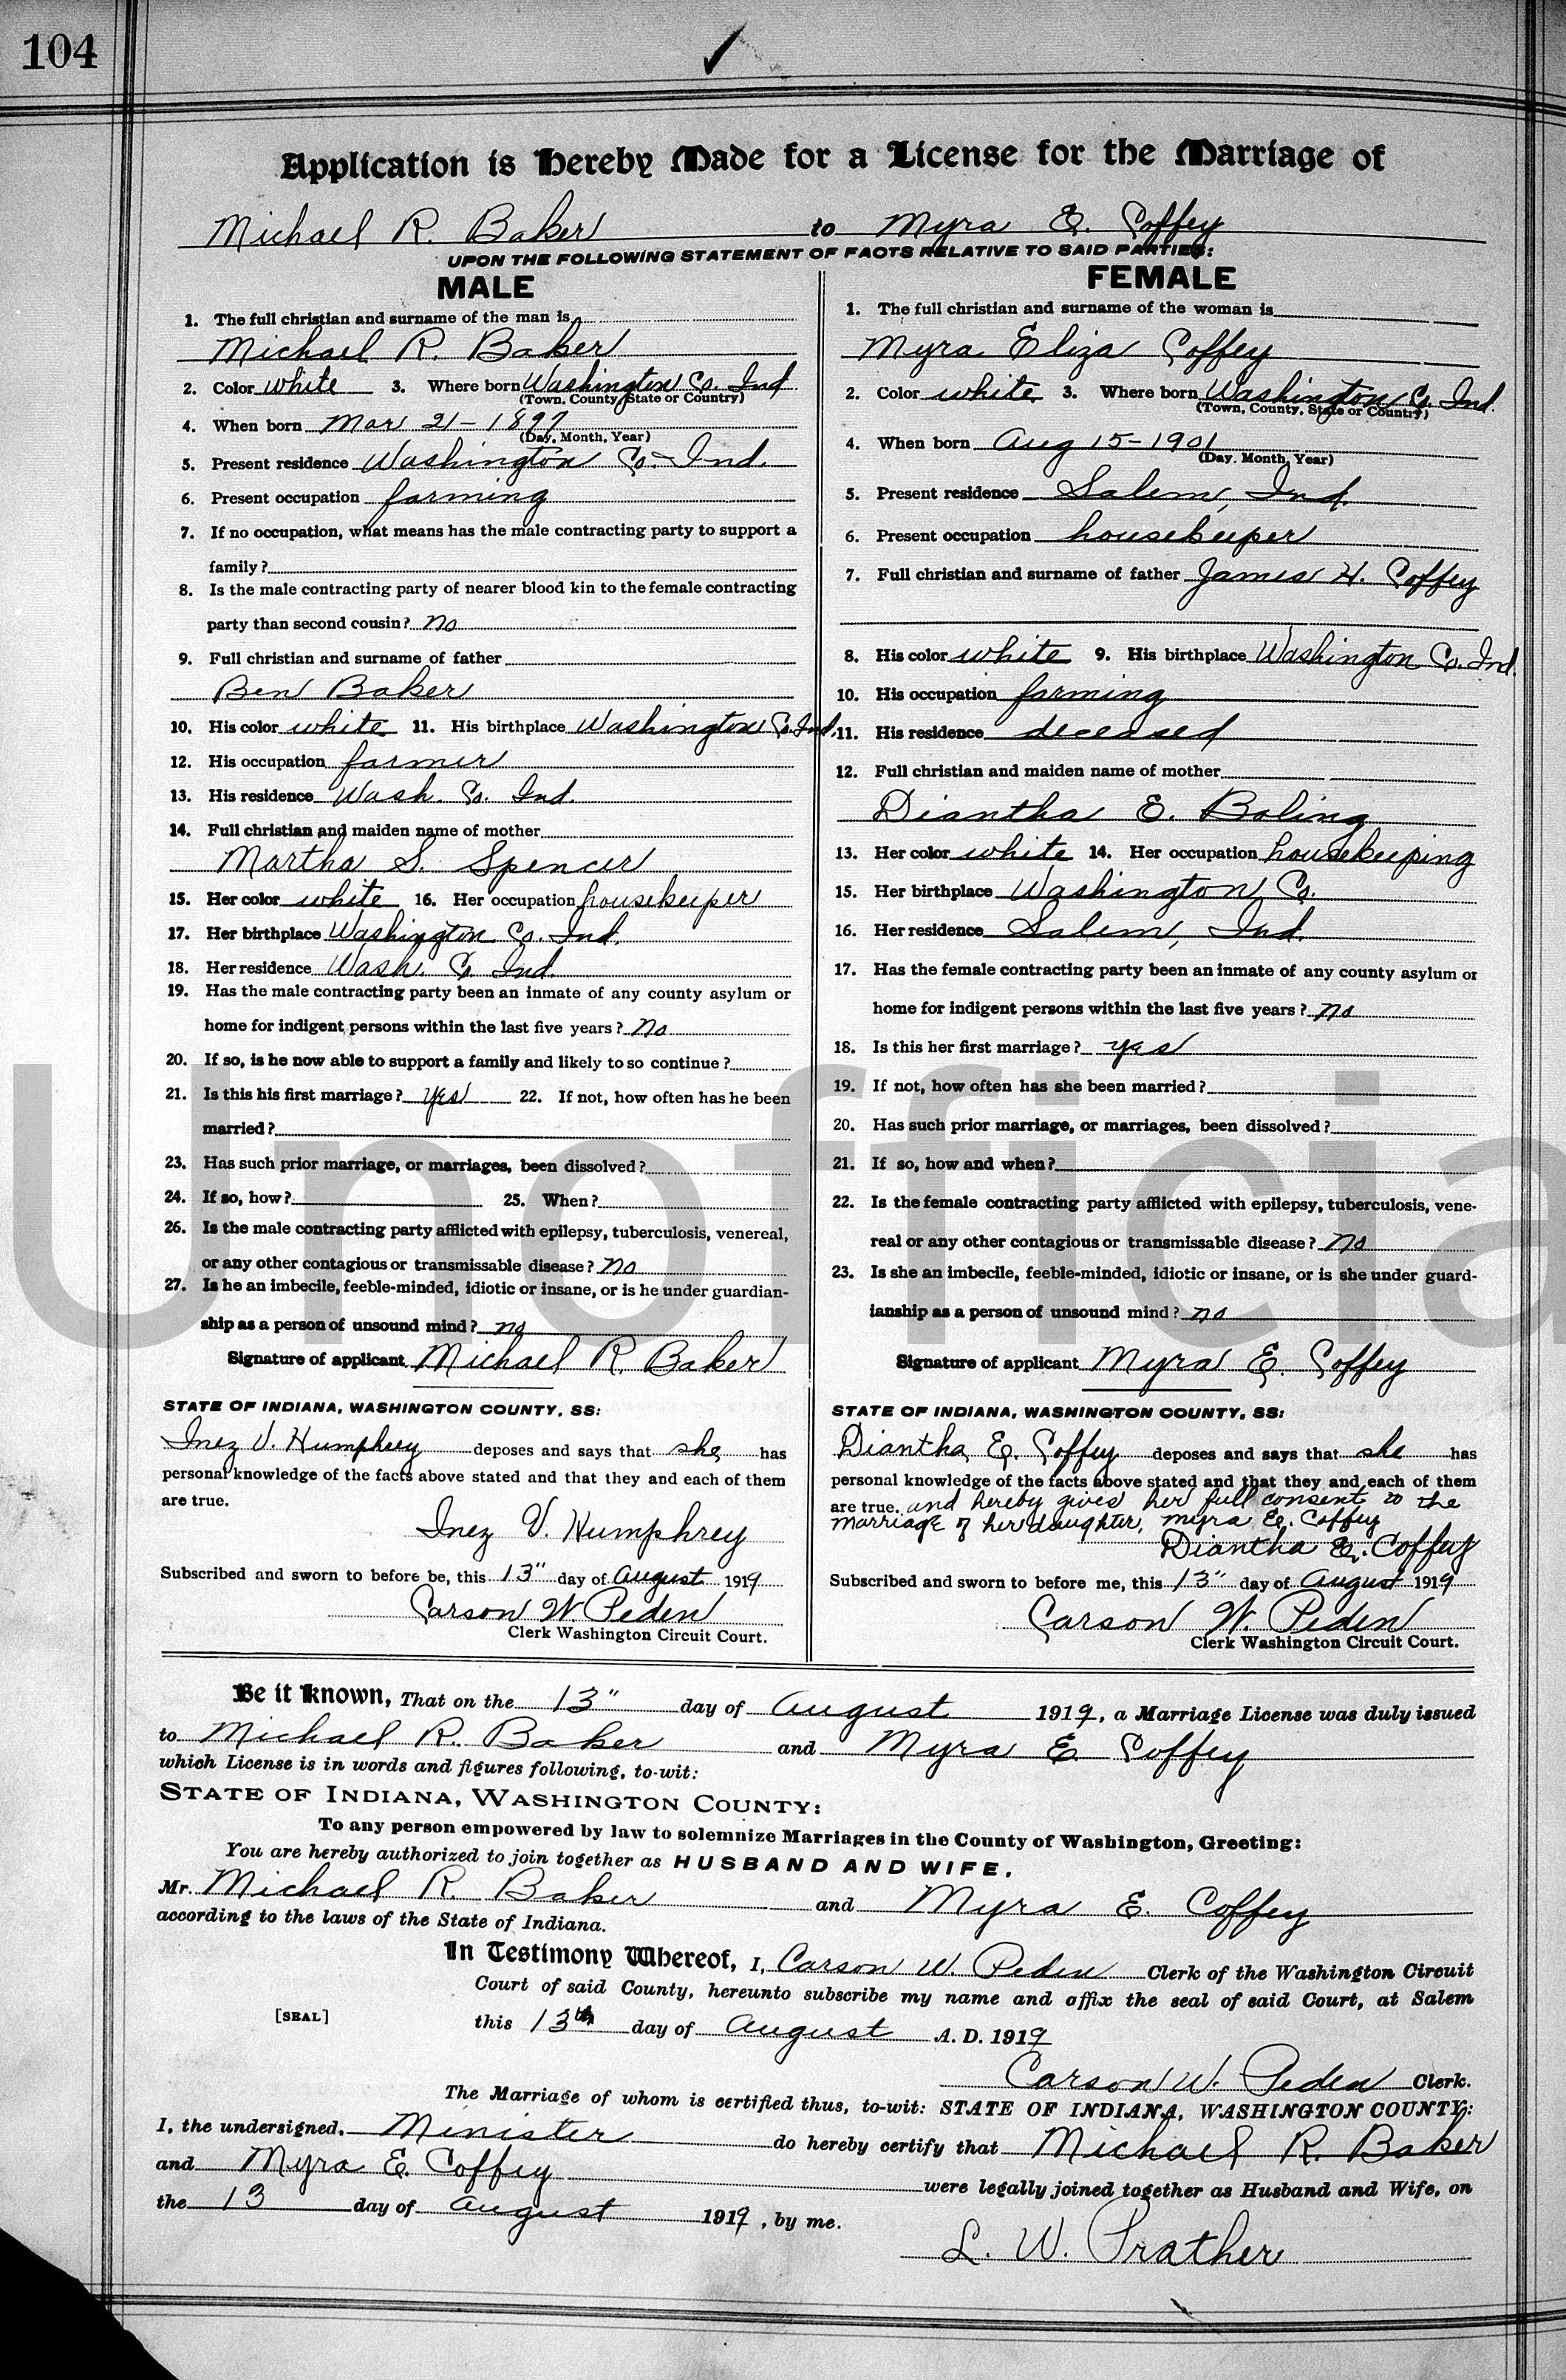 104
Application is Hereby Made for a License for the Marriage of
Michael R. Baker to Myra E. Coffey
UPON THE FOLLOWING STATEMENT OF FACTS RELATIVE TO SAID PARTIES:
MALE
1. The full christian and surname of the man is
Michael R. Baker
2. Color white 3. Where born Washington Co. Ind
(Town, County, State or Country)
4. When born Mar 21 - 1897
(Day, Month, Year)
5. Present residence Washington Co. Ind.
6. Present occupation farming
7. If no occupation, what means has the male contracting party to support a
family?
8. Is the male contracting party of nearer blood kin to the female contracting
party than second cousin? no
9. Full christian and surname of father
Ben Baker
10. His color white 11. His birthplace Washington Co. Ind.
12. His occupation farmer
13. His residence Wash. Co. Ind.
14. Full christian and maiden name of mother
Martha S. Spencer
15. Her color white 16. Her occupation housekeeper
17. Her birthplace Washington Co. Ind.
18. Her residence Wash. Co Ind.
19. Has the male contracting party been an inmate of any county asylum or
home for indigent persons within the last five years? no
20. If so, is he now able to support a family and likely to so continue?
21. Is this his first marriage? yes 22. If not, how often has he been
married?
23. Has such prior marriage, or marriages, been dissolved?
24. If so, how? 25. When?
26. Is the male contracting party afflicted with epilepsy, tuberculosis, venereal,
or any other contagious or transmissable disease? no
27. Is he an imbecile, feeble-minded, idiotic or insane, or is he under guardian-
ship as a person of unsound mind? no
Signature of applicant Michael R. Baker
STATE OF INDIANA, WASHINGTON COUNTY, SS:
Inez V. Humphrey deposes and says that she has
personal knowledge of the facts above stated and that they and each of them
are true.
Inez V. Humphrey
Subscribed and sworn to before be, this 13" day of August 1919
Carson W. Peden
Clerk Washington Circuit Court.
FEMALE
1. The full christian and surname of the woman is
Myra Eliza Coffey
2. Color white 3. Where born Washington Co. Ind.
(Town, County, State or Country)
4. When born Aug 15 - 1901
(Day, Month, Year)
5. Present residence Salem, Ind.
6. Present occupation housekeeper
7. Full christian and surname of father James H. Coffey
8. His color white 9. His birthplace Washington Co. Ind.
10. His occupation farming
11. His residence deceased
12. Full christian and maiden name of mother
Diantha E. Boling
13. Her color white 14. Her occupation housekeeping
15. Her birthplace Washington Co.
16. Her residence Salem, Ind.
17. Has the female contracting party been an inmate of any county asylum or
home for indigent persons within the last five years? no
18. Is this her first marriage? yes
19. If not, how often has she been married?
20. Has such prior marriage, or marriages, been dissolved?
21. If so, how and when?
22. Is the female contracting party afflicted with epilepsy, tuberculosis, vene-
real or any other contagious or transmissable disease? no
23. Is she an imbecile, feeble-minded, idiotic or insane, or is she under guard-
ianship as a person of unsound mind? no
Signature of applicant Myra E. Coffey
STATE OF INDIANA, WASHINGTON COUNTY, SS:
Diantha E. Coffey deposes and says that she has
personal knowledge of the facts above stated and that they and each of them
are true. and hereby gives her full consent to the
marriage of her daughter, Myra E. Coffey
Diantha E. Coffey
Subscribed and sworn to before me, this 13" day of August 1919
Carson W. Peden
Clerk Washington Circuit Court.
Be it known, That on the 13" day of August 1919, a Marriage License was duly issued
to Michael R. Baker and Myra E. Coffey
which License is in words and figures following, to-wit:
STATE OF INDIANA, WASHINGTON COUNTY:
To any person empowered by law to solemnize Marriages in the County of Washington, Greeting:
You are hereby authorized to join together as HUSBAND AND WIFE,
Mr. Michael R. Baker and Myra E. Coffey
according to the laws of the State of Indiana.
In Testimony Whereof, I, Carson W. Peden Clerk of the Washington Circuit
Court of said County, hereunto subscribe my name and affix the seal of said Court, at Salem
[SEAL] this 13th day of August A. D. 1919
Carson W. Peden Clerk.
The Marriage of whom is certified thus, to-wit: STATE OF INDIANA, WASHINGTON COUNTY:
I, the undersigned, Minister do hereby certify that Michael R. Baker
and Myra E. Coffey were legally joined together as Husband and Wife, on
the 13 day of August 1919, by me.
L. W. Prather
Unofficia